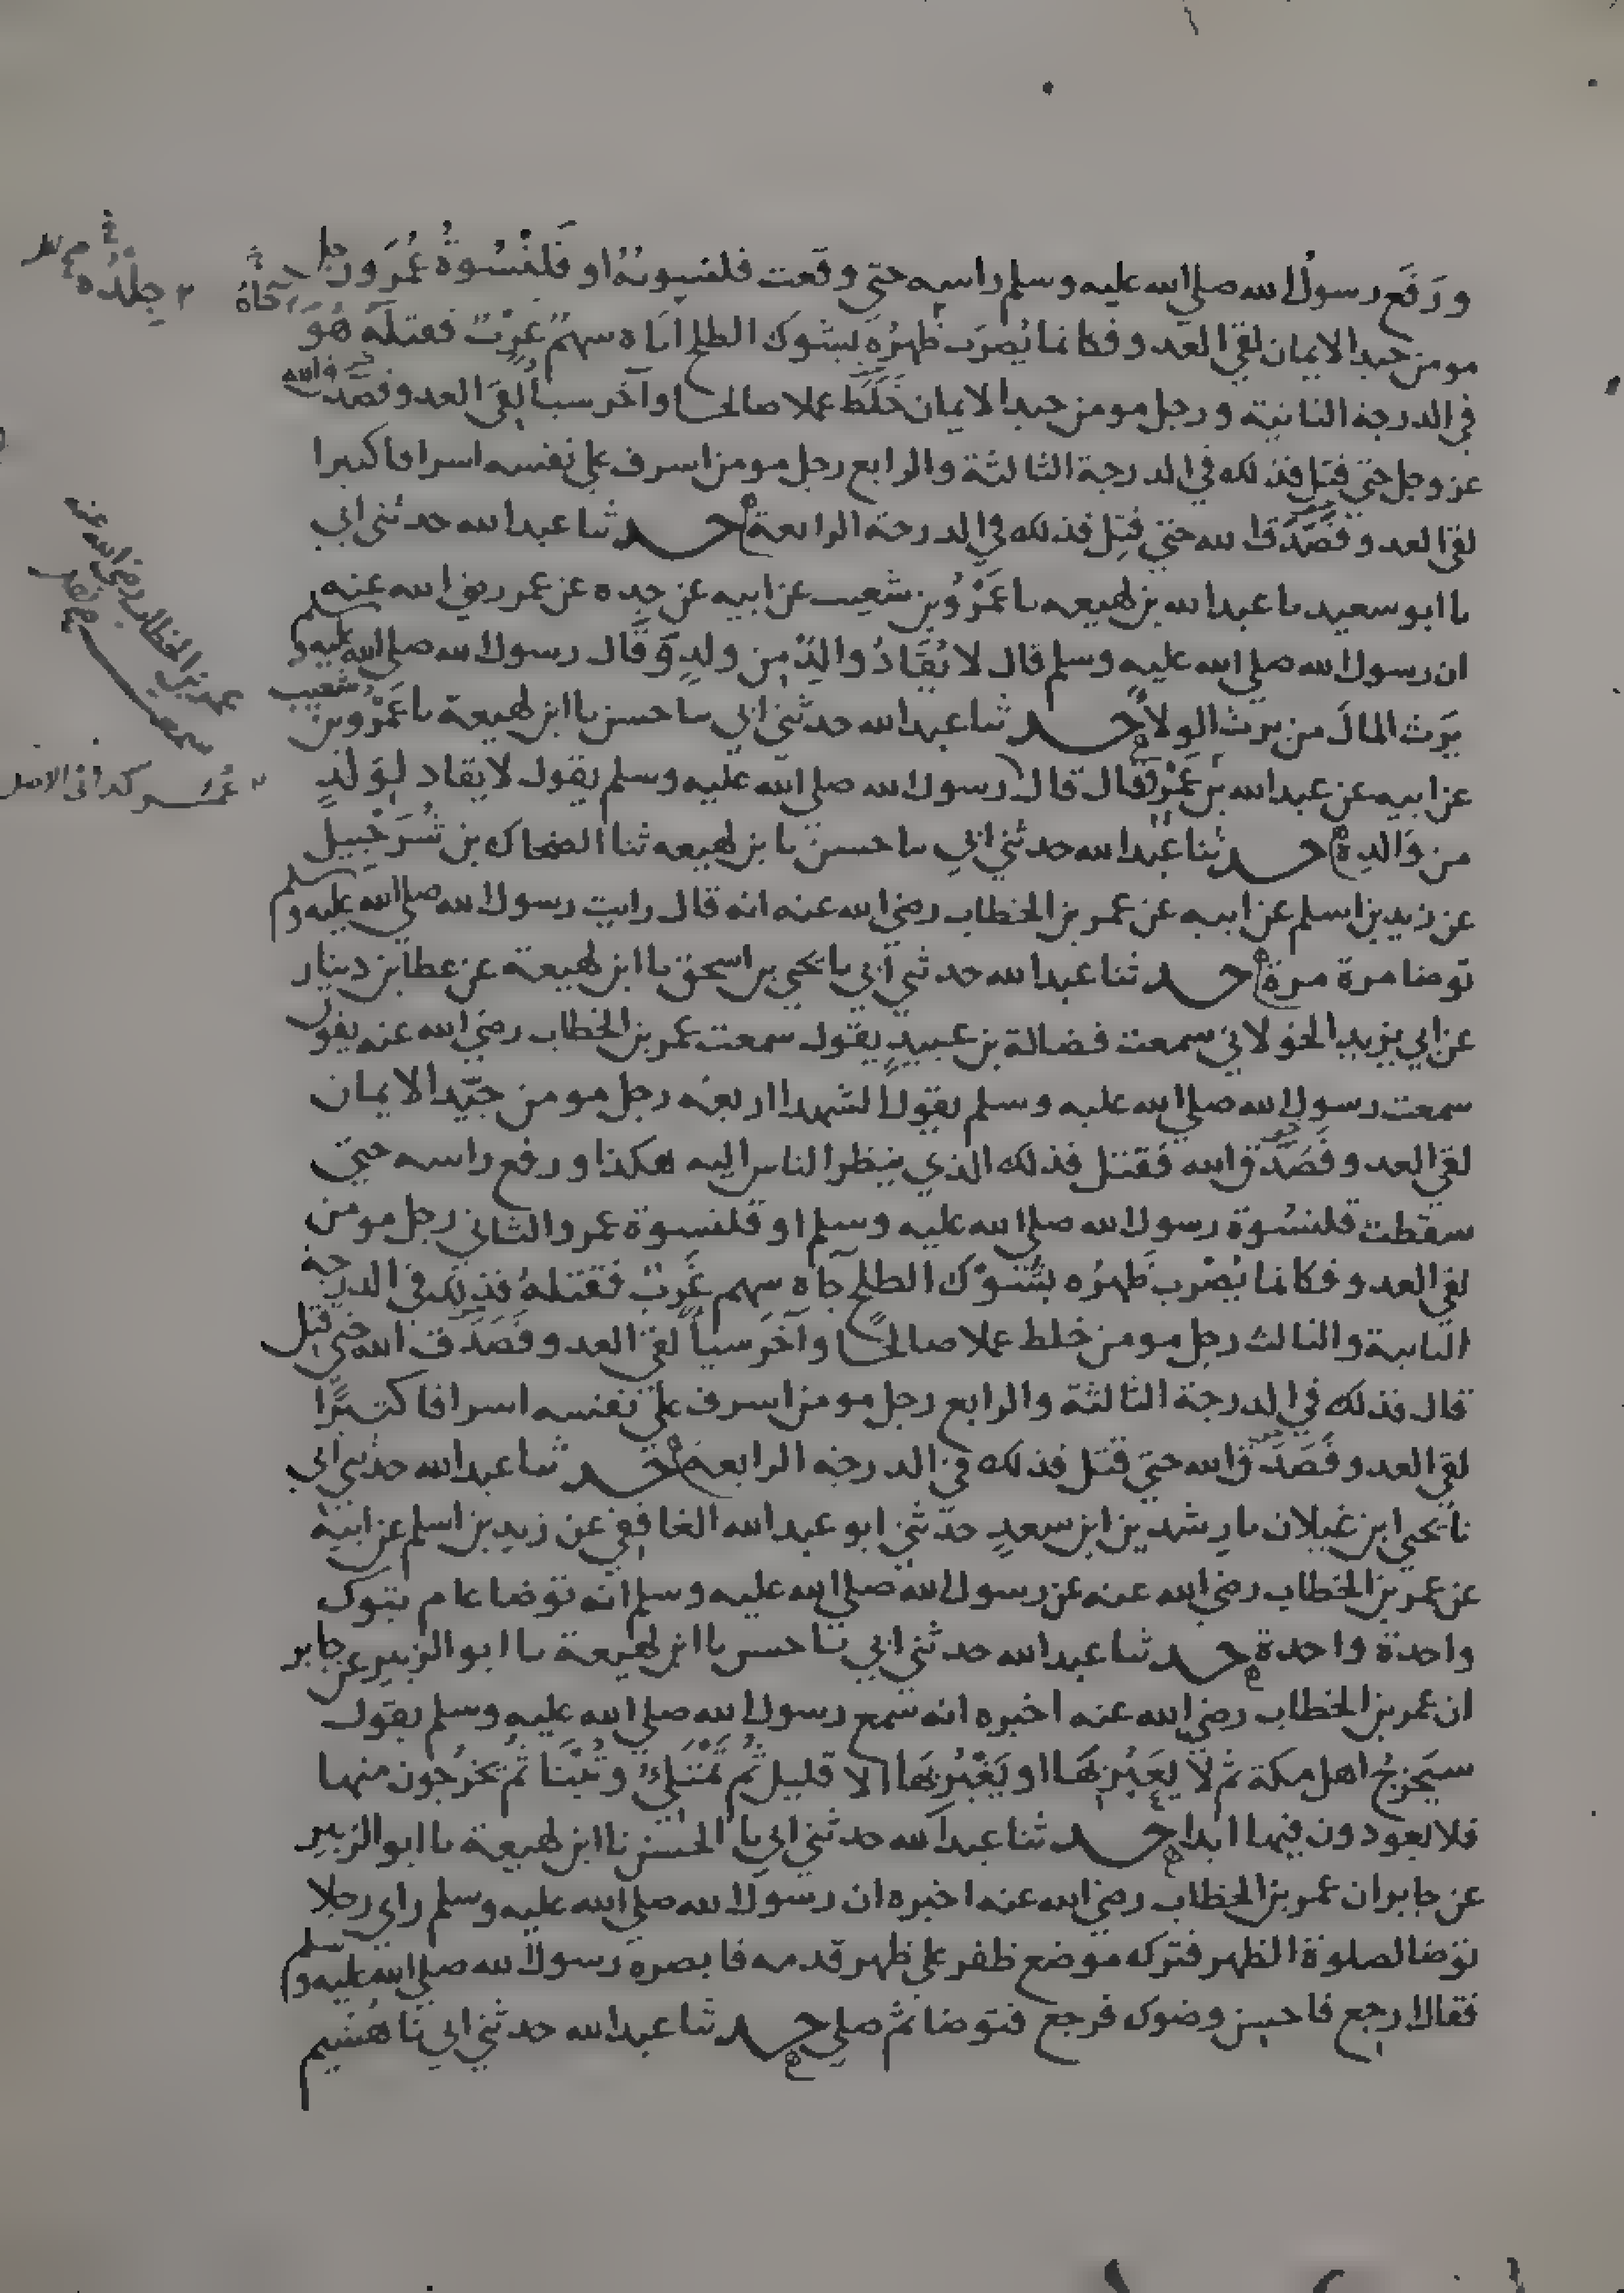 ورَفَع رسول الله صلى الله عليه وسلم راسه حتى وقعت قلنسوته او قَلَنْسُوةُ عُمَرَ ورجل
مومن جيد الايمان لقي العدو فكانما يُضرَب ظهرُه بشوك الطلح اتاه سهمٌ غَرْبٌ فقتله هُوَ
في الدرجة الثانية ورجل مومن جيد الايمان خَلَطَ عملا صالحا وآخر سيا لقي العدو فصَدَق الله
عز وجل حتى قتل فذلك في الدرجة الثالثة والرابع رجل مومن اسرف على نفسه اسرافا كبيرا
لقي العدو فصَدَّق الله حتى قُتِل فذلك في الدرجة الرابعة حـد ثنا عبد الله حدثني ابي
نا ابو سعيد نا عبد الله بن لهيعه نا عَمْرُو بن شعيب عن ابيه عن جده عن عمر رضي الله عنه
ان رسول الله صلى الله عليه وسلم قال لا يُقَادُ والِدٌ مِن ولدٍ وقَال رسول الله صلى الله عليه وسلم
يَرث المالَ من يرث الولا حـد ثنا عبد الله حدثني ابي نا حسن نا ابن لهيعة نا عَمْرُو بن شعيب
عن ابيه عن عبد الله بن عَمْرٍو قال قال رسول الله صلى الله عليه وسلم يقول لا يقاد لِوَلَدٍ
من وَالده حـد ثنا عبد الله حدثني ابي نا حسن نا بن لهيعه ثنا الضحاك بن شُرَحْبيل
عن زيد بن اسلم عن ابيه عن عمر بن الخطاب رضي الله عنه انه قال رايت رسول الله صلى الله عليه وسلم
توضا مرة مرة حـد ثنا عبد الله حدثني ابي نا يحيى بن اسحق نا ابن لهيعة عن عطا بن دينار
عن ابي يزيد الخولاني سمعت فضالة بن عبيدٍ يقول سمعت عمر بن الخطاب رضي الله عنه يقول
سمعت رسول الله صلى الله عليه وسلم يقول الشهدا اربعه رجل مومن جَيّد الايمان
لقي العدو فَصَدَّق الله فَقتل فذلك الذي ينظر الناس اليه هكذا ورفع راسه حتى
سقطت قلنسُوة رسول الله صلى الله عليه وسلم او قلنسوة عمر والثاني رجل مومن
لقي العدو فكانما يُضْرب ظَهرُه بشَوْك الطلح جاه سهم غَرْبٌ فقتلهُ فذلك في الدرجة
الثانية والثالث رجل مومن خلط عملا صالحًا وآخَر سيأً لقي العدو فَصَدَّق الله حتى قتل
قال فذلك في الدرجة الثالثة والرابع رجل مومن اسرف على نفسه اسرافا كثيرًا
لقي العدو فَصَدَّق الله حتى قتل فذلك في الدرجة الرابعة حـد ثنا عبد الله حدثني ابي
نا يحيى ابن غيلان نا رِشدين ابن سعدٍ حدثني ابو عبد الله الغافقي عن زيد بن اسلم عن ابيه
عن عمر بن الخطاب رضي الله عنه عن رسول الله صلى الله عليه وسلم انه توضا عام تبوك
واحدة واحدة حـد ثنا عبد الله حدثني ابي نا حسن نا ابن لهيعة نا ابو الزبير عن جابر
ان عمر بن الخطاب رضي الله عنه اخبره انه سَمع رسول الله صلى الله عليه وسلم يقول
سيَخرجُ اهل مكة ثم لا يَعبُر بهَا او يَعْبُر بهَا الا قليل ثُم تَمْتَلِئُ وتُبْنَا ثُم يخرُجون منها
فلا يعودون فيها ابدا حـد ثنا عبد الله حدثني ابي نا الحَسَن نا ابن لهيعة نا ابو الزبير
عن جابر ان عمر بن الخطاب رضي الله عنه اخبره ان رسول الله صلى الله عليه وسلم راى رجلا
توضا لصلوة الظهر فترك موضع ظفر على ظهر قدمه فابصره رسول الله صلى الله عليه وسلم
فقال ارجع فاحسن وضوك فرجع فتوضا ثم صلى حـد ثنا عبد الله حدثني ابي نا هُشيم
جِلْدُه
جَاهُ
عمر بن الخطاب رضي الله عنه
عُمَر كذا في الاصل